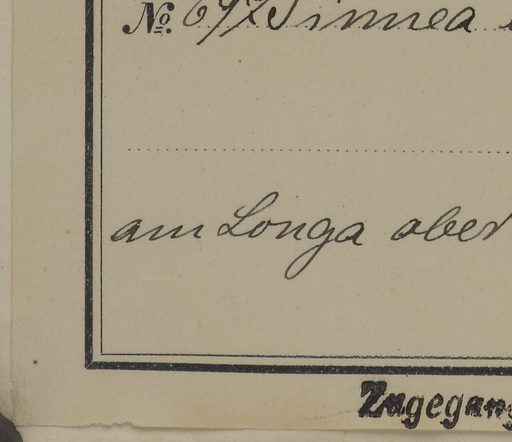 No. 697 Linnea
am Longa ober
Zugegang